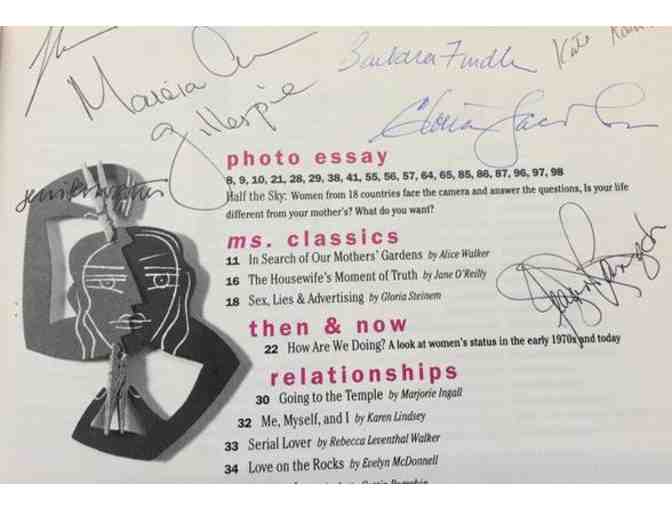 Marcia Ann
Gillespie
Barbara Findlen
Kate
Gloria Jacobs
photo essay
8, 9, 10, 21, 28, 29, 38, 41, 55, 56, 57, 64, 65, 85, 86, 87, 96, 97, 98
Half the Sky: Women from 18 countries face the camera and answer the questions, Is your life
different from your mother's? What do you want?
ms. classics
11 In Search of Our Mothers' Gardens by Alice Walker
16 The Housewife's Moment of Truth by Jane O'Reilly
18 Sex, Lies & Advertising by Gloria Steinem
then & now
22 How Are We Doing? A look at women's status in the early 1970s and today
relationships
30 Going to the Temple by Marjorie Ingall
32 Me, Myself, and I by Karen Lindsey
33 Serial Lover by Rebecca Leventhal Walker
34 Love on the Rocks by Evelyn McDonnell